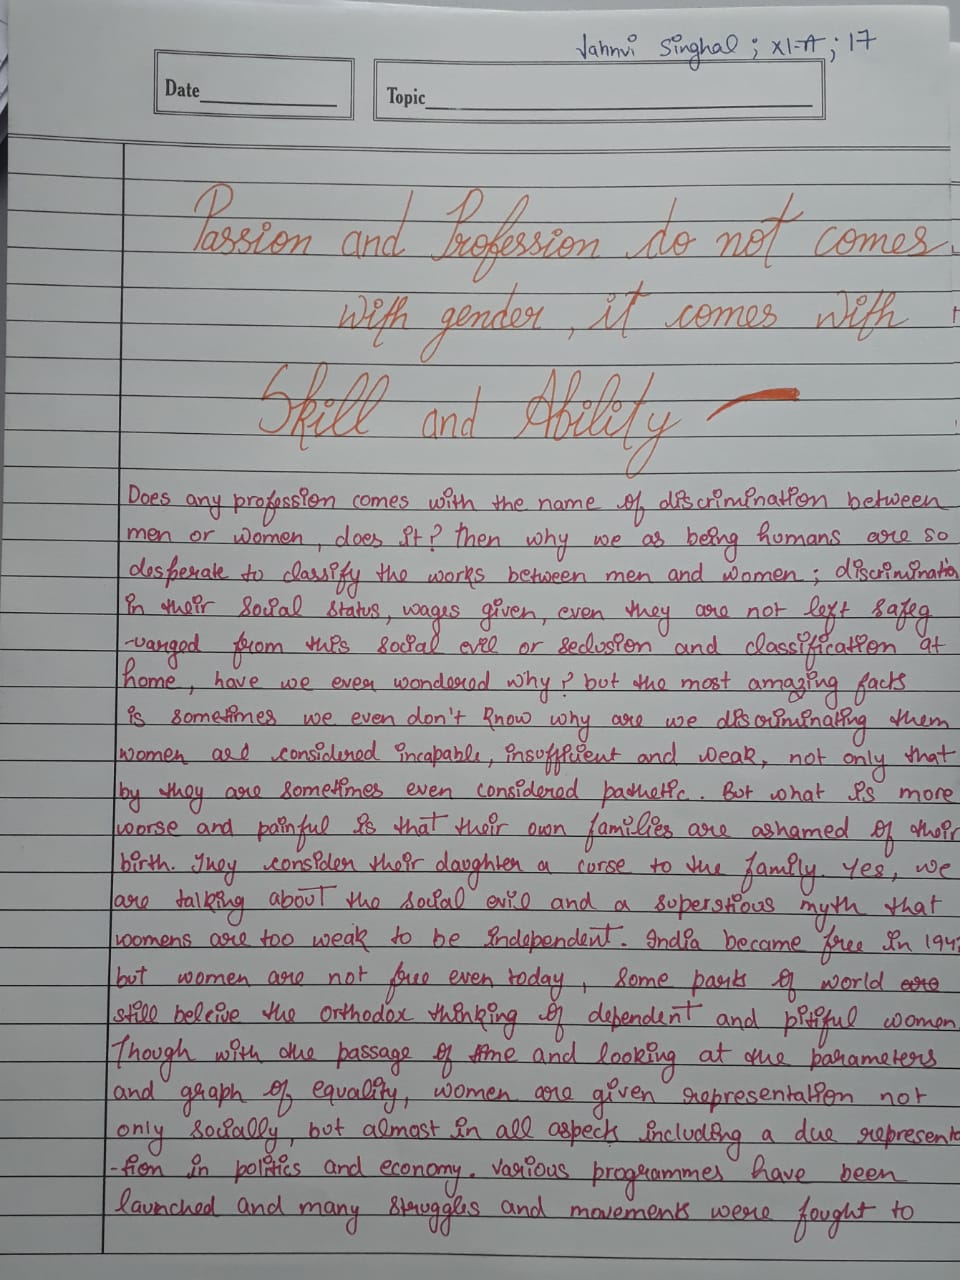 Jahnvi Singhal ; XI-A ; 17
Date
Topic
Passion and Profession do not comes
with gender, it comes with
Skill and Ability
Does any profession comes with the name of discrimination between
men or women, does it? Then why we as being humans are so
desperate to classify the works between men and women; discriminatio
in their social status, wages given, even they are not left safeg
-uarged from this social evil or seclusion and classification at
home, have we ever wondered why? but the most amazing facts
is sometimes we even don't know why are we discriminating them
women are considered incapable, insufficient and weak, not only that
by they are sometimes even considered pathetic. But what is more
worse and painful is that their own families are ashamed of their
birth. They consider their daughter a curse to the family. Yes, we
are talking about the social evil and a superstious myth that
womens are too weak to be independent. India became free in 194
but women are not free even today, some parts of world are
still beleive the orthodox thinking of dependent and pitiful women
Though with the passage of time and looking at the parameters
and graph of equality, women are given representation not
only socially, but almost in all aspeck including a due represent
-tion in politics and economy. Various programmes have been
launched and many struggles and movements were fought to